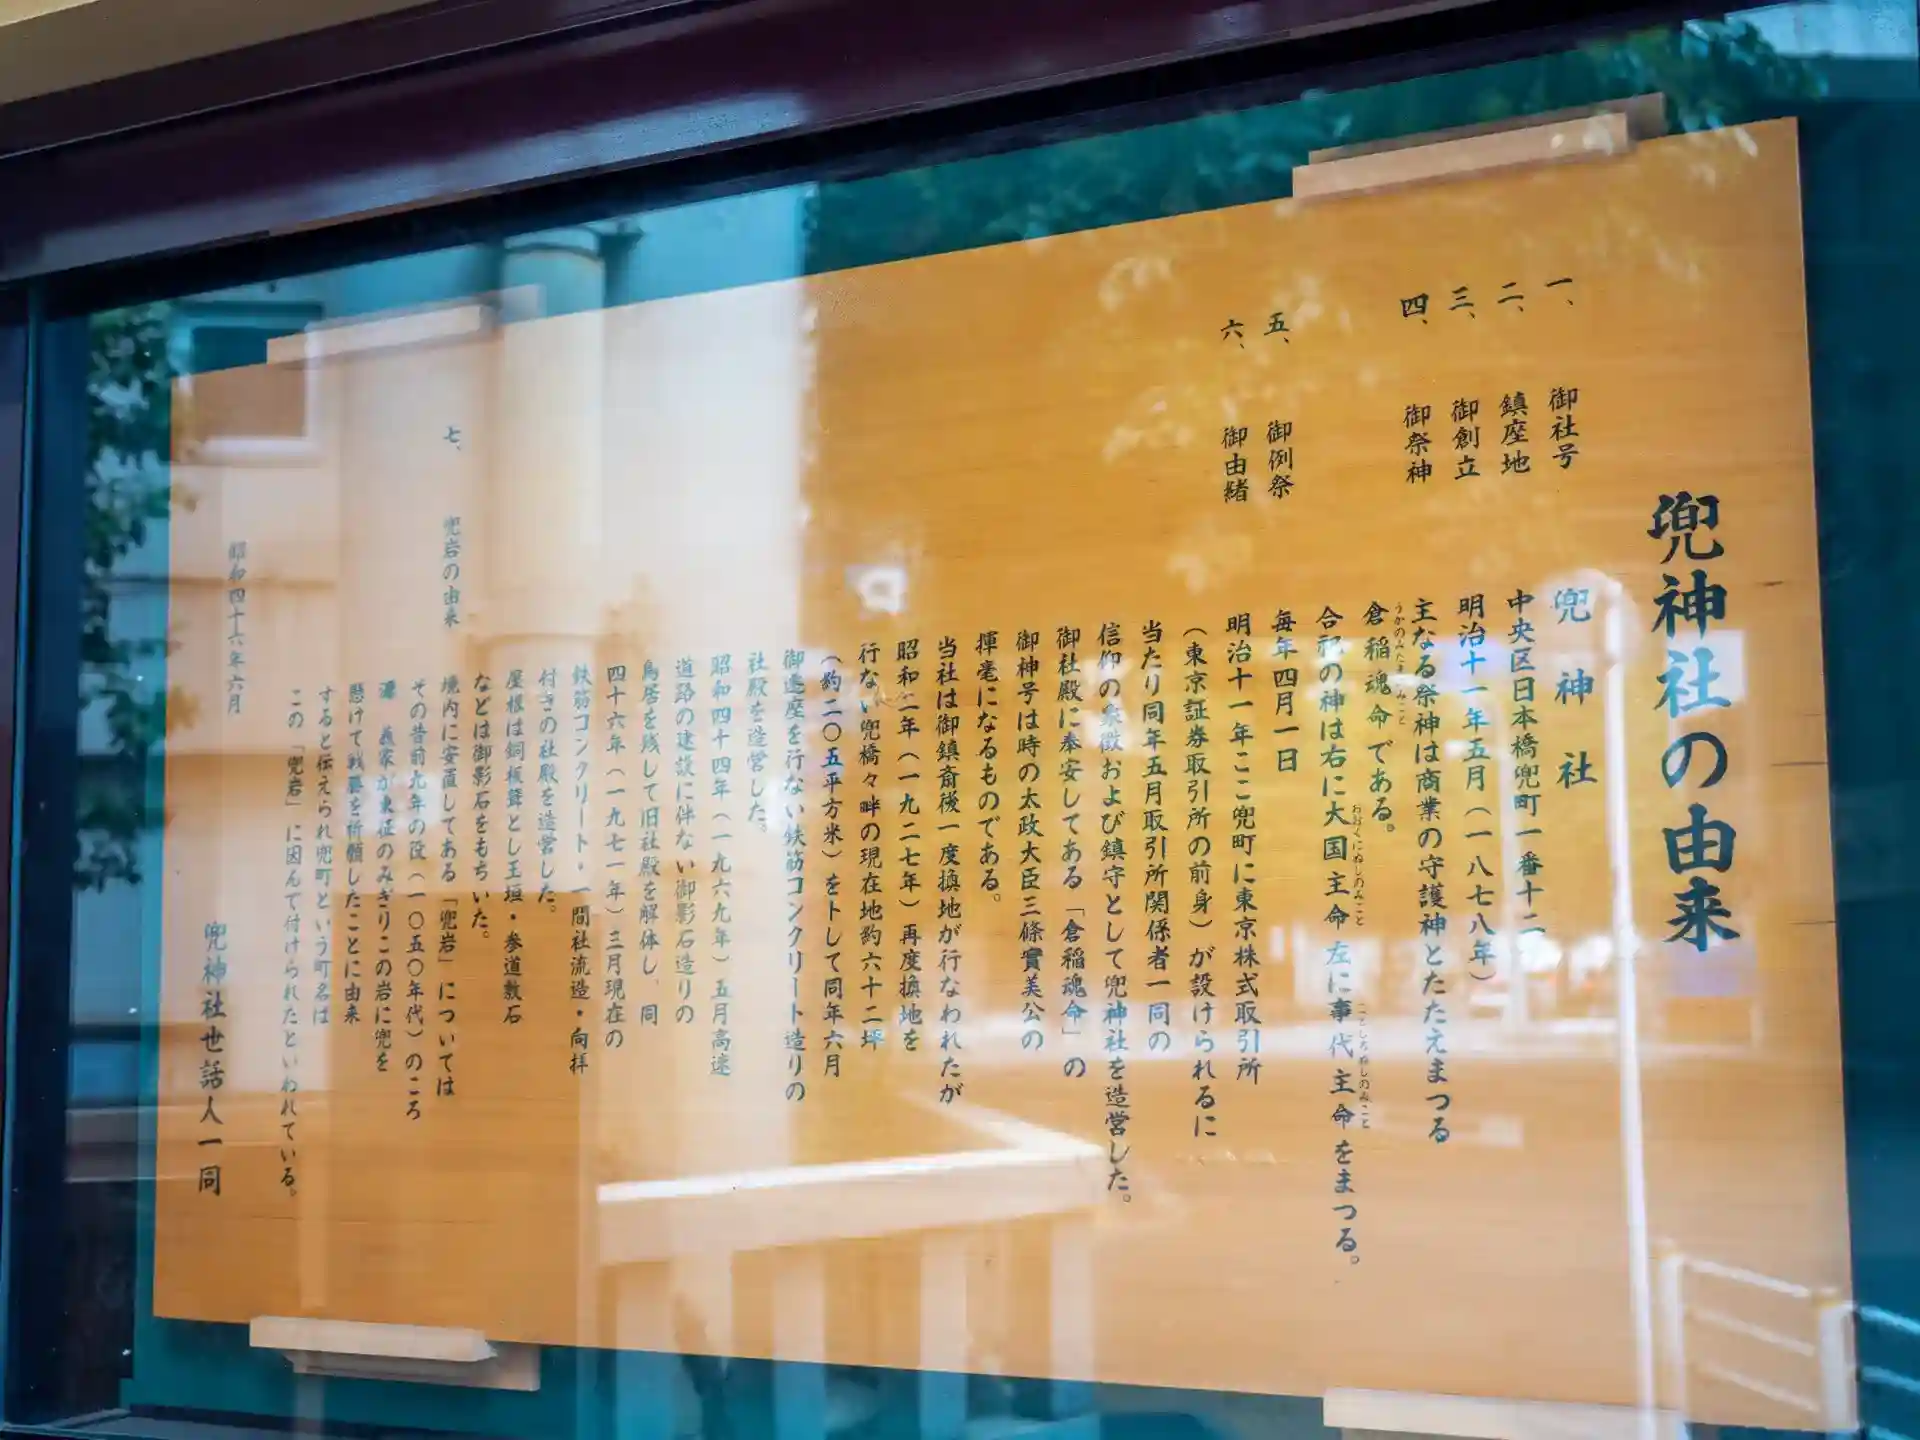 兜神社の由来
一、 御社号 兜神社
二、 鎮座地 中央区日本橋兜町一番十二
三、 御創立 明治十一年五月(一八七八年)
四、 御祭神 主なる祭神は商業の守護神とたたえまつる
倉稲魂命である。
うかのみたまのみこと
合祀の神は右に大国主命 左に事代主命をまつる。
おおくにぬしのみこと
ことしろぬしのみこと
五、 御例祭 毎年四月一日
六、 御由緒 明治十一年ここ兜町に東京株式取引所
(東京証券取引所の前身)が設けられるに
当たり同年五月取引所関係者一同の
信仰の象徴および鎮守として兜神社を造営した。
御社殿に奉安してある「倉稲魂命」の
御神号は時の太政大臣三條實美公の
揮毫になるものである。
当社は御鎮斎後一度換地が行なわれたが
昭和二年(一九二七年)再度換地を
行ない兜橋々畔の現在地約六十二坪
(約二〇五平方米)を卜して同年六月
御遷座を行ない鉄筋コンクリート造りの
社殿を造営した。
昭和四十四年(一九六九年)五月高速
道路の建設に伴ない御影石造りの
鳥居を残して旧社殿を解体し、同
四十六年(一九七一年)三月現在の
鉄筋コンクリート・一間社流造・向拝
付きの社殿を造営した。
屋根は銅板葺とし玉垣・参道敷石
などは御影石をもちいた。
七、 兜岩の由来 境内に安置してある「兜岩」については
その昔前九年の役(一〇五〇年代)のころ
源 義家が東征のみぎりこの岩に兜を
懸けて戦勝を祈願したことに由来
すると伝えられ兜町という町名は
この「兜岩」に因んで付けられたといわれている。
昭和四十六年六月
兜神社世話人一同